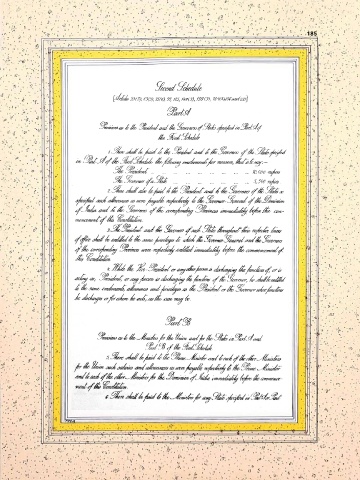 185
Second Schedule
Part A
Provisions as to the President and the Governors of States specified in Part A of
the First Schedule
1. There shall be paid to the President and to the Governors of the States specified
in Part A of the First Schedule the following emoluments per mensem, that is to say:—
The President 10,000 rupees
The Governor of a State 5,500 rupees
2. There shall also be paid to the President and to the Governors of the States so
specified such allowances as were payable respectively to the Governor General of the Dominion
of India and to the Governors of the corresponding Provinces immediately before the com-
mencement of this Constitution.
3. The President and the Governors of such States throughout their respective terms
of office shall be entitled to the same privileges to which the Governor General and the Governors
of the corresponding Provinces were respectively entitled immediately before the commencement of
this Constitution.
4. While the Vice-President or any other person is discharging the functions of, or is
acting as, President, or any person is discharging the functions of the Governor, he shall be entitled
to the same emoluments, allowances and privileges as the President or the Governor whose functions
he discharges or for whom he acts, as the case may be.
Part B
Provisions as to the Ministers for the Union and for the States in Part A and
Part B of the First Schedule
5. There shall be paid to the Prime Minister and to each of the other Ministers
for the Union such salaries and allowances as were payable respectively to the Prime Minister
and to each of the other Ministers for the Dominion of India immediately before the commence-
ment of this Constitution.
6. There shall be paid to the Ministers for any State specified in Part A or Part